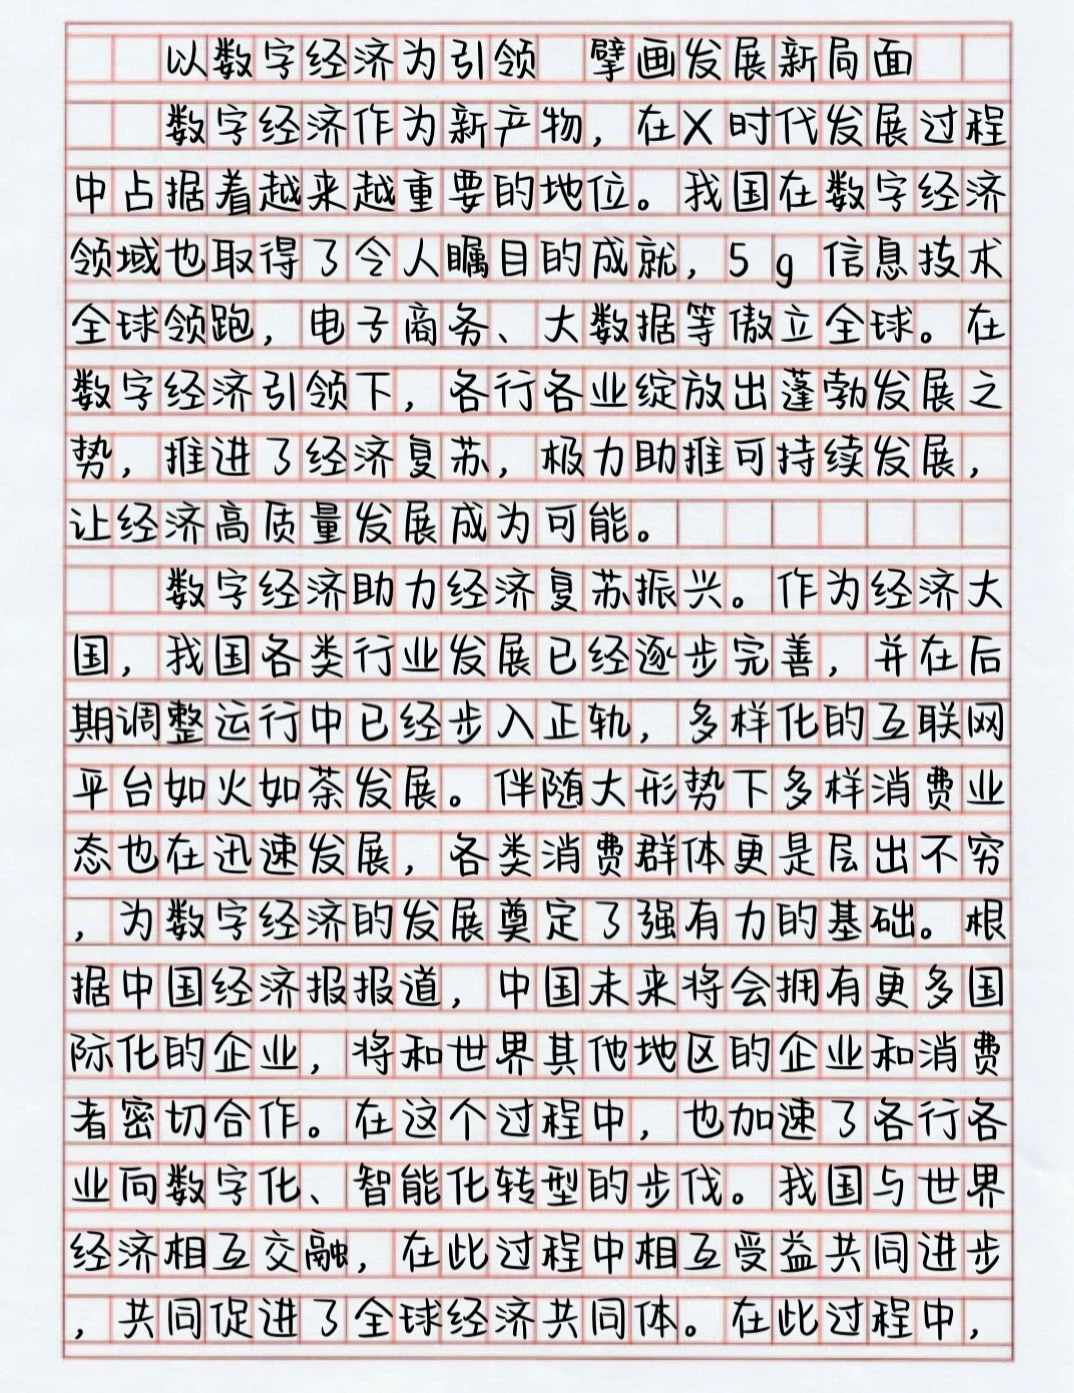 以数字经济为引领 擘画发展新局面
数字经济作为新产物，在X时代发展过程
中占据着越来越重要的地位。我国在数字经济
领域也取得了令人瞩目的成就，5g信息技术
全球领跑，电子商务、大数据等傲立全球。在
数字经济引领下，各行各业绽放出蓬勃发展之
势，推进了经济复苏，极力助推可持续发展，
让经济高质量发展成为可能。
数字经济助力经济复苏振兴。作为经济大
国，我国各类行业发展已经逐步完善，并在后
期调整运行中已经步入正轨，多样化的互联网
平台如火如荼发展。伴随大形势下多样消费业
态也在迅速发展，各类消费群体更是层出不穷
，为数字经济的发展奠定了强有力的基础。根
据中国经济报报道，中国未来将会拥有更多国
际化的企业，将和世界其他地区的企业和消费
者密切合作。在这个过程中，也加速了各行各
业向数字化、智能化转型的步伐。我国与世界
经济相互交融，在此过程中相互受益共同进步
，共同促进了全球经济共同体。在此过程中，